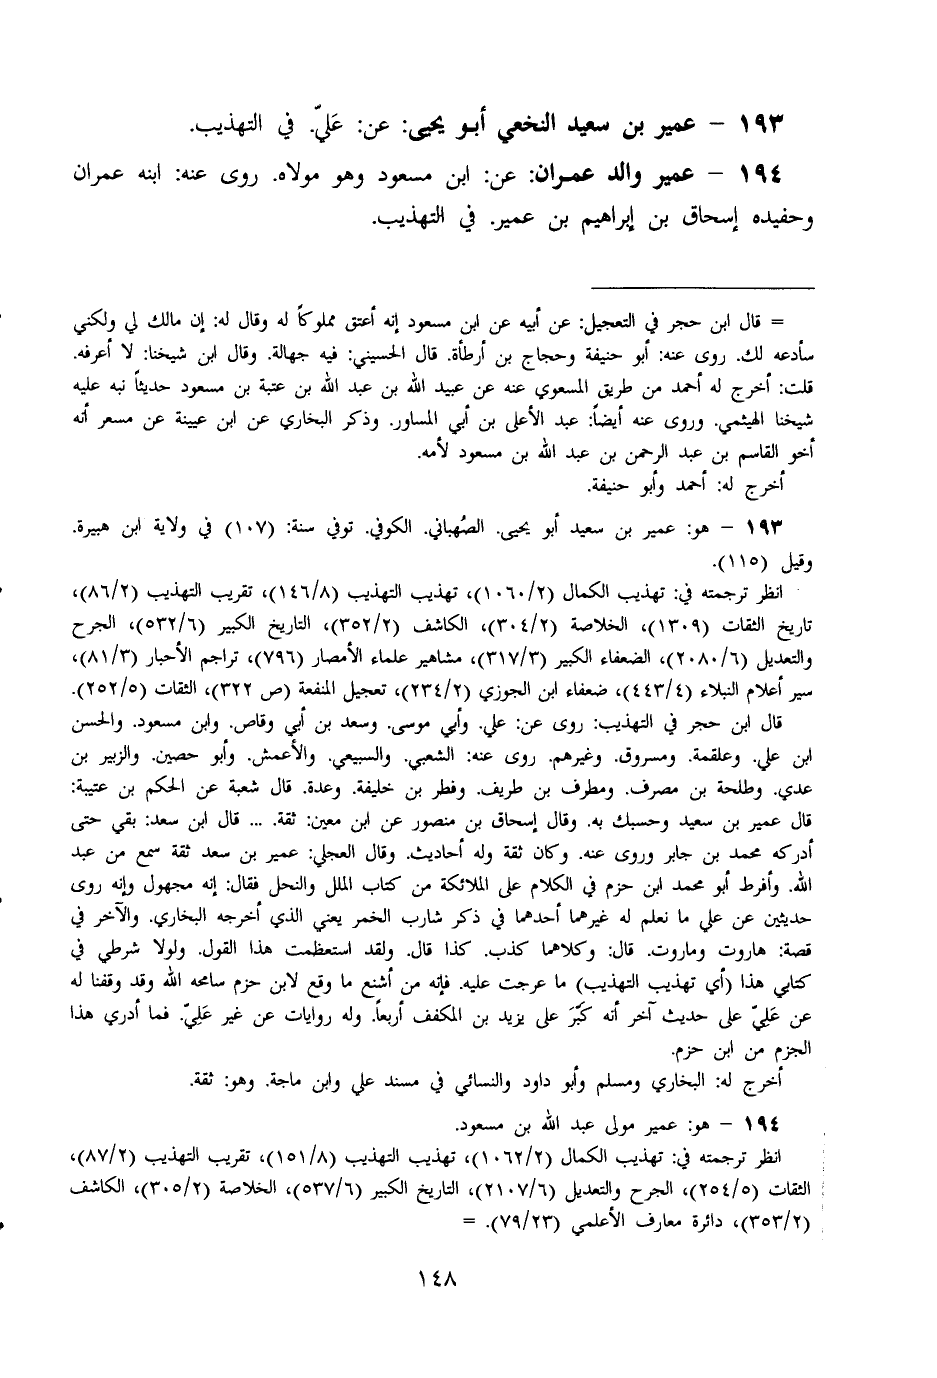 ١٩٣ – عمير بن سعيد النخعي أبـو يحيى: عن: عَليّ. في التهذيب.
١٩٤ – عمير والد عمـران: عن: ابن مسعود وهو مولاه. روى عنه: ابنه عمران
وحفيده إسحاق بن إبراهيم بن عمير. في التهذيب.
= قال ابن حجر في التعجيل: عن أبيه عن ابن مسعود إنه أعتق مملوكاً له وقال له: إن مالك لي ولكني
سأدعه لك. روى عنه: أبو حنيفة وحجاج بن أرطأة. قال الحسيني: فيه جهالة. وقال ابن شيخنا: لا أعرفه.
قلت: أخرج له أحمد من طريق المسعودي عنه عن عبيد الله بن عبد الله بن عتبة بن مسعود حديثاً نبه عليه
شيخنا الهيثمي. وروى عنه أيضاً: عبد الأعلى بن أبي المساور. وذكر البخاري عن ابن عيينة عن مسعر أنه
أخو القاسم بن عبد الرحمن بن عبد الله بن مسعود لأمه.
أخرج له: أحمد وأبو حنيفة.
١٩٣ – هو: عمير بن سعيد أبو يحيى. الصُهباني. الكوفي. توفي سنة: (١٠٧) في ولاية ابن هبيرة.
وقيل (١١٥).
انظر ترجمته في: تهذيب الكمال (١٠٦٠/٢)، تهذيب التهذيب (١٤٦/٨)، تقريب التهذيب (٨٦/٢)،
تاريخ الثقات (١٣٠٩)، الخلاصة (٣٠٤/٢)، الكاشف (٣٥٢/٢)، التاريخ الكبير (٥٣٢/٦)، الجرح
والتعديل (٢٠٨٠/٦)، الضعفاء الكبير (٣١٧/٣)، مشاهير علماء الأمصار (٧٩٦)، تراجم الأحبار (٨١/٣)،
سير أعلام النبلاء (٤٤٣/٤)، ضعفاء ابن الجوزي (٢٣٤/٢)، تعجيل المنفعة (ص ٣٢٢)، الثقات (٢٥٢/٥).
قال ابن حجر في التهذيب: روى عن: علي. وأبي موسى. وسعد بن أبي وقاص. وابن مسعود. والحسن
ابن علي. وعلقمة. ومسروق. وغيرهم. روى عنه: الشعبي. والسبيعي. والأعمش. وأبو حصين. والزبير بن
عدي. وطلحة بن مصرف. ومطرف بن طريف. وفطر بن خليفة. وعدة. قال شعبة عن الحكم بن عتيبة:
قال عمير بن سعيد وحسبك به. وقال إسحاق بن منصور عن ابن معين: ثقة. ... قال ابن سعد: بقي حتى
أدركه محمد بن جابر وروى عنه. وكان ثقة وله أحاديث. وقال العجلي: عمير بن سعد ثقة سمع من عبد
الله. وأفرط أبو محمد ابن حزم في الكلام على الملائكة من كتاب الملل والنحل فقال: إنه مجهول وإنه روى
حديثين عن علي ما نعلم له غيرهما أحدهما في ذكر شارب الخمر يعني الذي أخرجه البخاري. والآخر في
قصة: هاروت وماروت. قال: وكلاهما كذب. كذا قال. ولقد استعظمت هذا القول. ولولا شرطي في
كتابي هذا (أي تهذيب التهذيب) ما عرجت عليه. فإنه من أشنع ما وقع لابن حزم سامحه الله وقد وقفنا له
عن عَلِيّ على حديث آخر أنه كَبَّرَ على يزيد بن المكفف أربعاً. وله روايات عن غير عَلِيّ. فما أدري هذا
الجزم من ابن حزم.
أخرج له: البخاري ومسلم وأبو داود والنسائي في مسند علي وابن ماجة. وهو: ثقة.
١٩٤ – هو: عمير مولى عبد الله بن مسعود.
انظر ترجمته في: تهذيب الكمال (١٠٦٢/٢)، تهذيب التهذيب (١٥١/٨)، تقريب التهذيب (٨٧/٢)،
الثقات (٢٥٤/٥)، الجرح والتعديل (٢١٠٧/٦)، التاريخ الكبير (٥٣٧/٦)، الخلاصة (٣٠٥/٢)، الكاشف
(٣٥٣/٢)، دائرة معارف الأعلمي (٧٩/٢٣). =
١٤٨